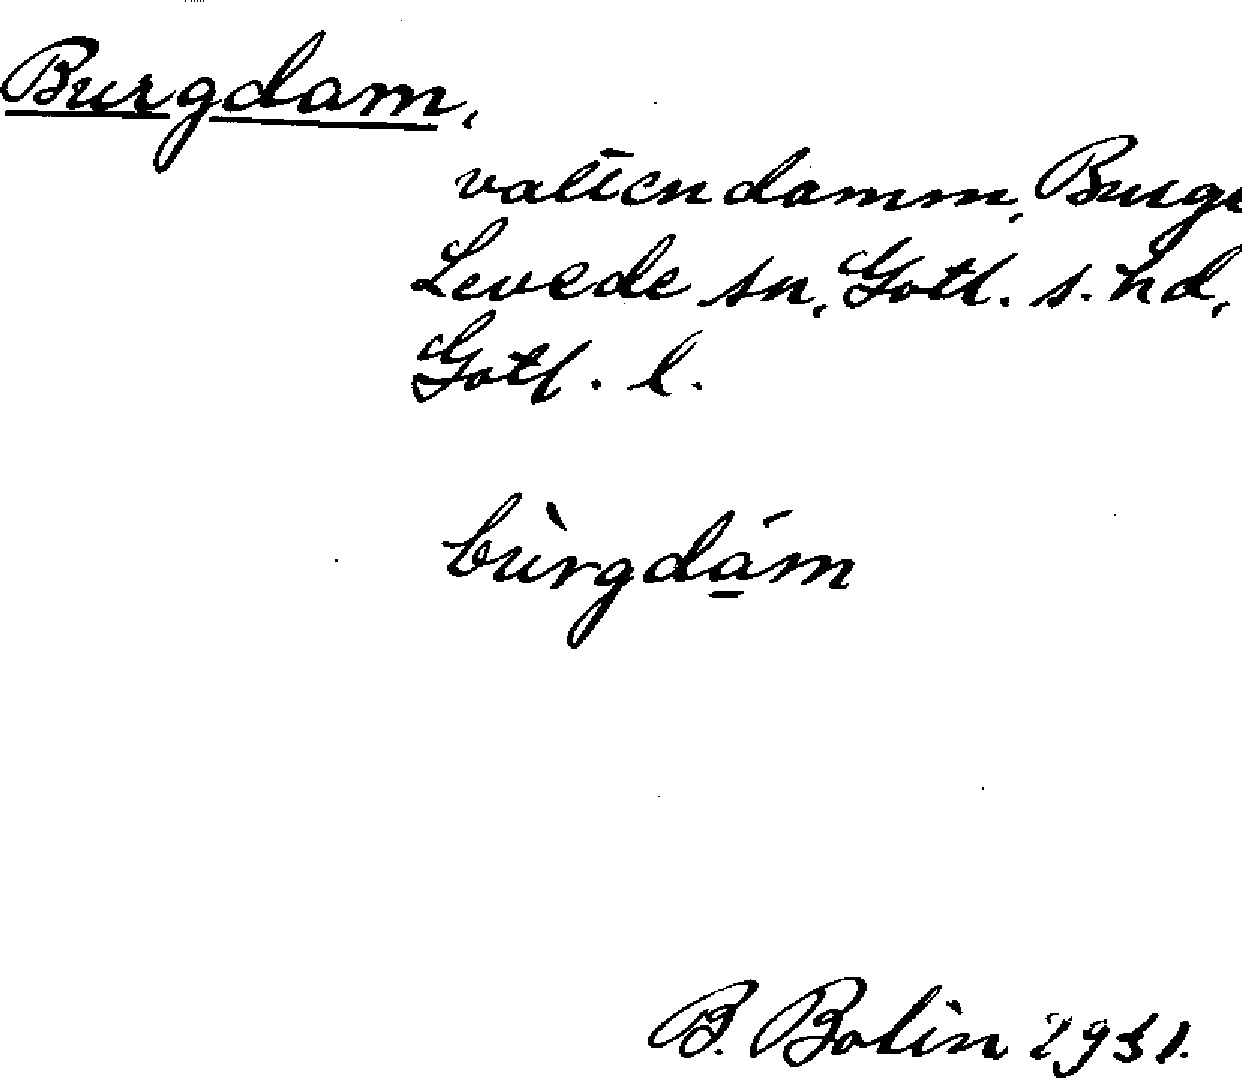 Burgdam,
vattendamm, Burge
Levede sn, Gotl. s. hd,
Gotl. l.
bùrgdá̲m
B. Bolin 1931.